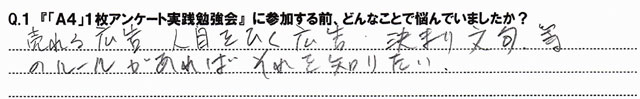 Q.1 『「A4」1枚アンケート実践勉強会』に参加する前、どんなことで悩んでいましたか？
売れる広告 人目をひく広告. 決まり文句. 等
のルールがあれば それを知りたい.